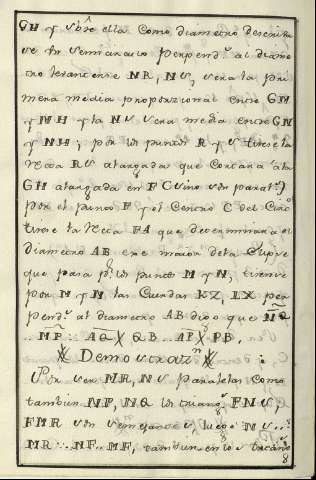 GH y sobre ella como diametro descriva
se un semicirculo perpend.r al diame
tro levantense NR, NS, sera la pri
mera média proporzional entre GN
y NH y la NS sera media entre GN
y NH; por los puntos R y S tirese la
recta RS alargada que cortara a la
GH alargada en F (si no son paral.s)
por el punto F y el centro C del circ.o
tirese la recta FA que determinara el
diametro AB, exe maior dela
que para p.r los puntos M y N, tirense
por M y N las cuerdas KZ, IX per
pend.s al diametro AB digo que MQ
NP: AQ X QB.. AP X PB.
Demostraz.n
Por ser MR, NS paralelas como
tambien NP, MQ los triang.s FNS,
FMR son semejantes, luego NS..
MR:. NF.. MF, tambien en los triang